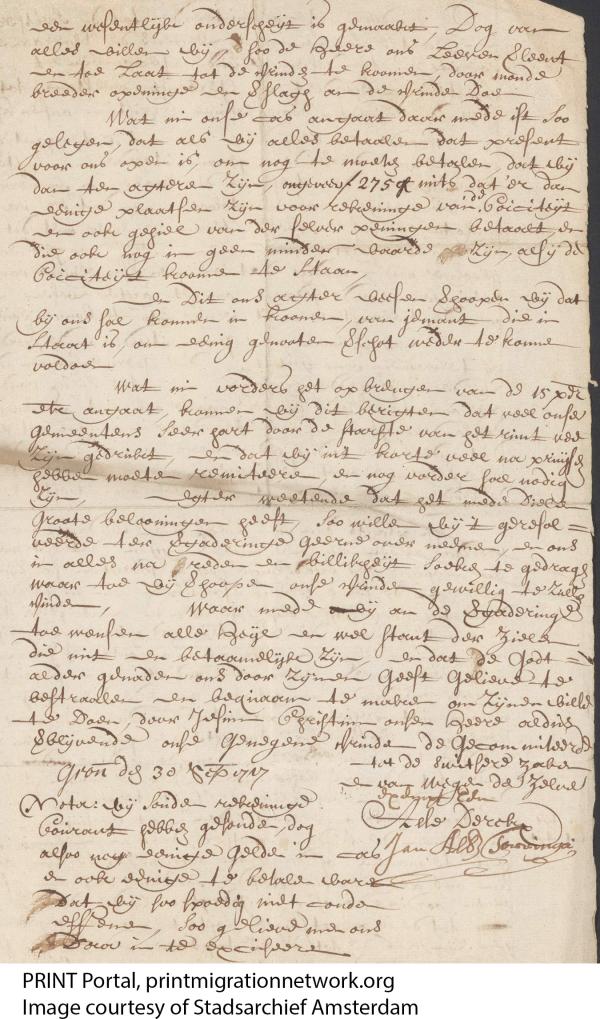 een wesentlijke onderscheijt is gemaackt, Dog van
alles willen wij, soo de Heere ons Leeven Sleent
en toe Laat tot de vrinde te koomen, door monde
breeder openinge en Eslagh an de vrinde Doe
Wat nu onse cas angaat daar mede ist soo
gelegen, dat als wij alles betaalen dat present
voor ons open is, om nog te moete betalen, dat wij
dan ten agteren zijn, ongeveer f 275 mits dat 'er dan
eenige plaatsen zijn voor rekeninge van di Socciteijt
en ook gehiel van der selver peningen betaalt, en
die ook nog in geen minder waarde zijn, als sij de
Socciteijt koomen te staan,
en Dit ons agter weesen Ehoopen wij dat
bij ons sal konnen in koomen, van jemant die in
Staat is, om eenig genooten Eschot weder te konne
voldoen
Wat nu vorders het opbrengen van de 15 pdr
etc angaat, konnen wij dit berigten dat veel onse
gemeentens seer hart door de starfte van het rint vee
zijn gedrukt, en dat wij uit korte veel na
hebbe moete remiteere, en nog vorder sal nodig
zijn, egter weetende dat het mede Diele
groote belooningen heeft, soo willen wij 't geresol=
veerde ter Egaderinge geerne over neeme, en ons
in alles na reden en billikheijt soeke te gedrage
waar toe wij Ehoope onse vrinde gewillig te zulle
vinde, Waar mede wij an de Egaderinge
toe wensen alle Heijl en wel stant der ziele
die nut en betaamelijke zijn, en dat de Godt
alder genaden ons door zijnen Geest Gelieve te
bestraalen en bequaam te maken om zijnen wille
te Doen, door Jesum Christum onsen Heere aldus
Eblijvende onse Genegene vrinde de Gecommiteerde
tot de Switsere zake
Gron den 30 Sep 1717
en van wegen de zelve
Nota: wij soude rekeninge
Alle Dercks
Courant hebbe gesonde, dog
alsoo nog eenige gelde in cas
Jan Alb
en ook eenige te betale ware
Dat wij soo spoedig niet conde
effene, soo gelieve men ons
Daar in te exciseere
PRINT Portal, printmigrationnetwork.org
Image courtesy of Stadsarchief Amsterdam